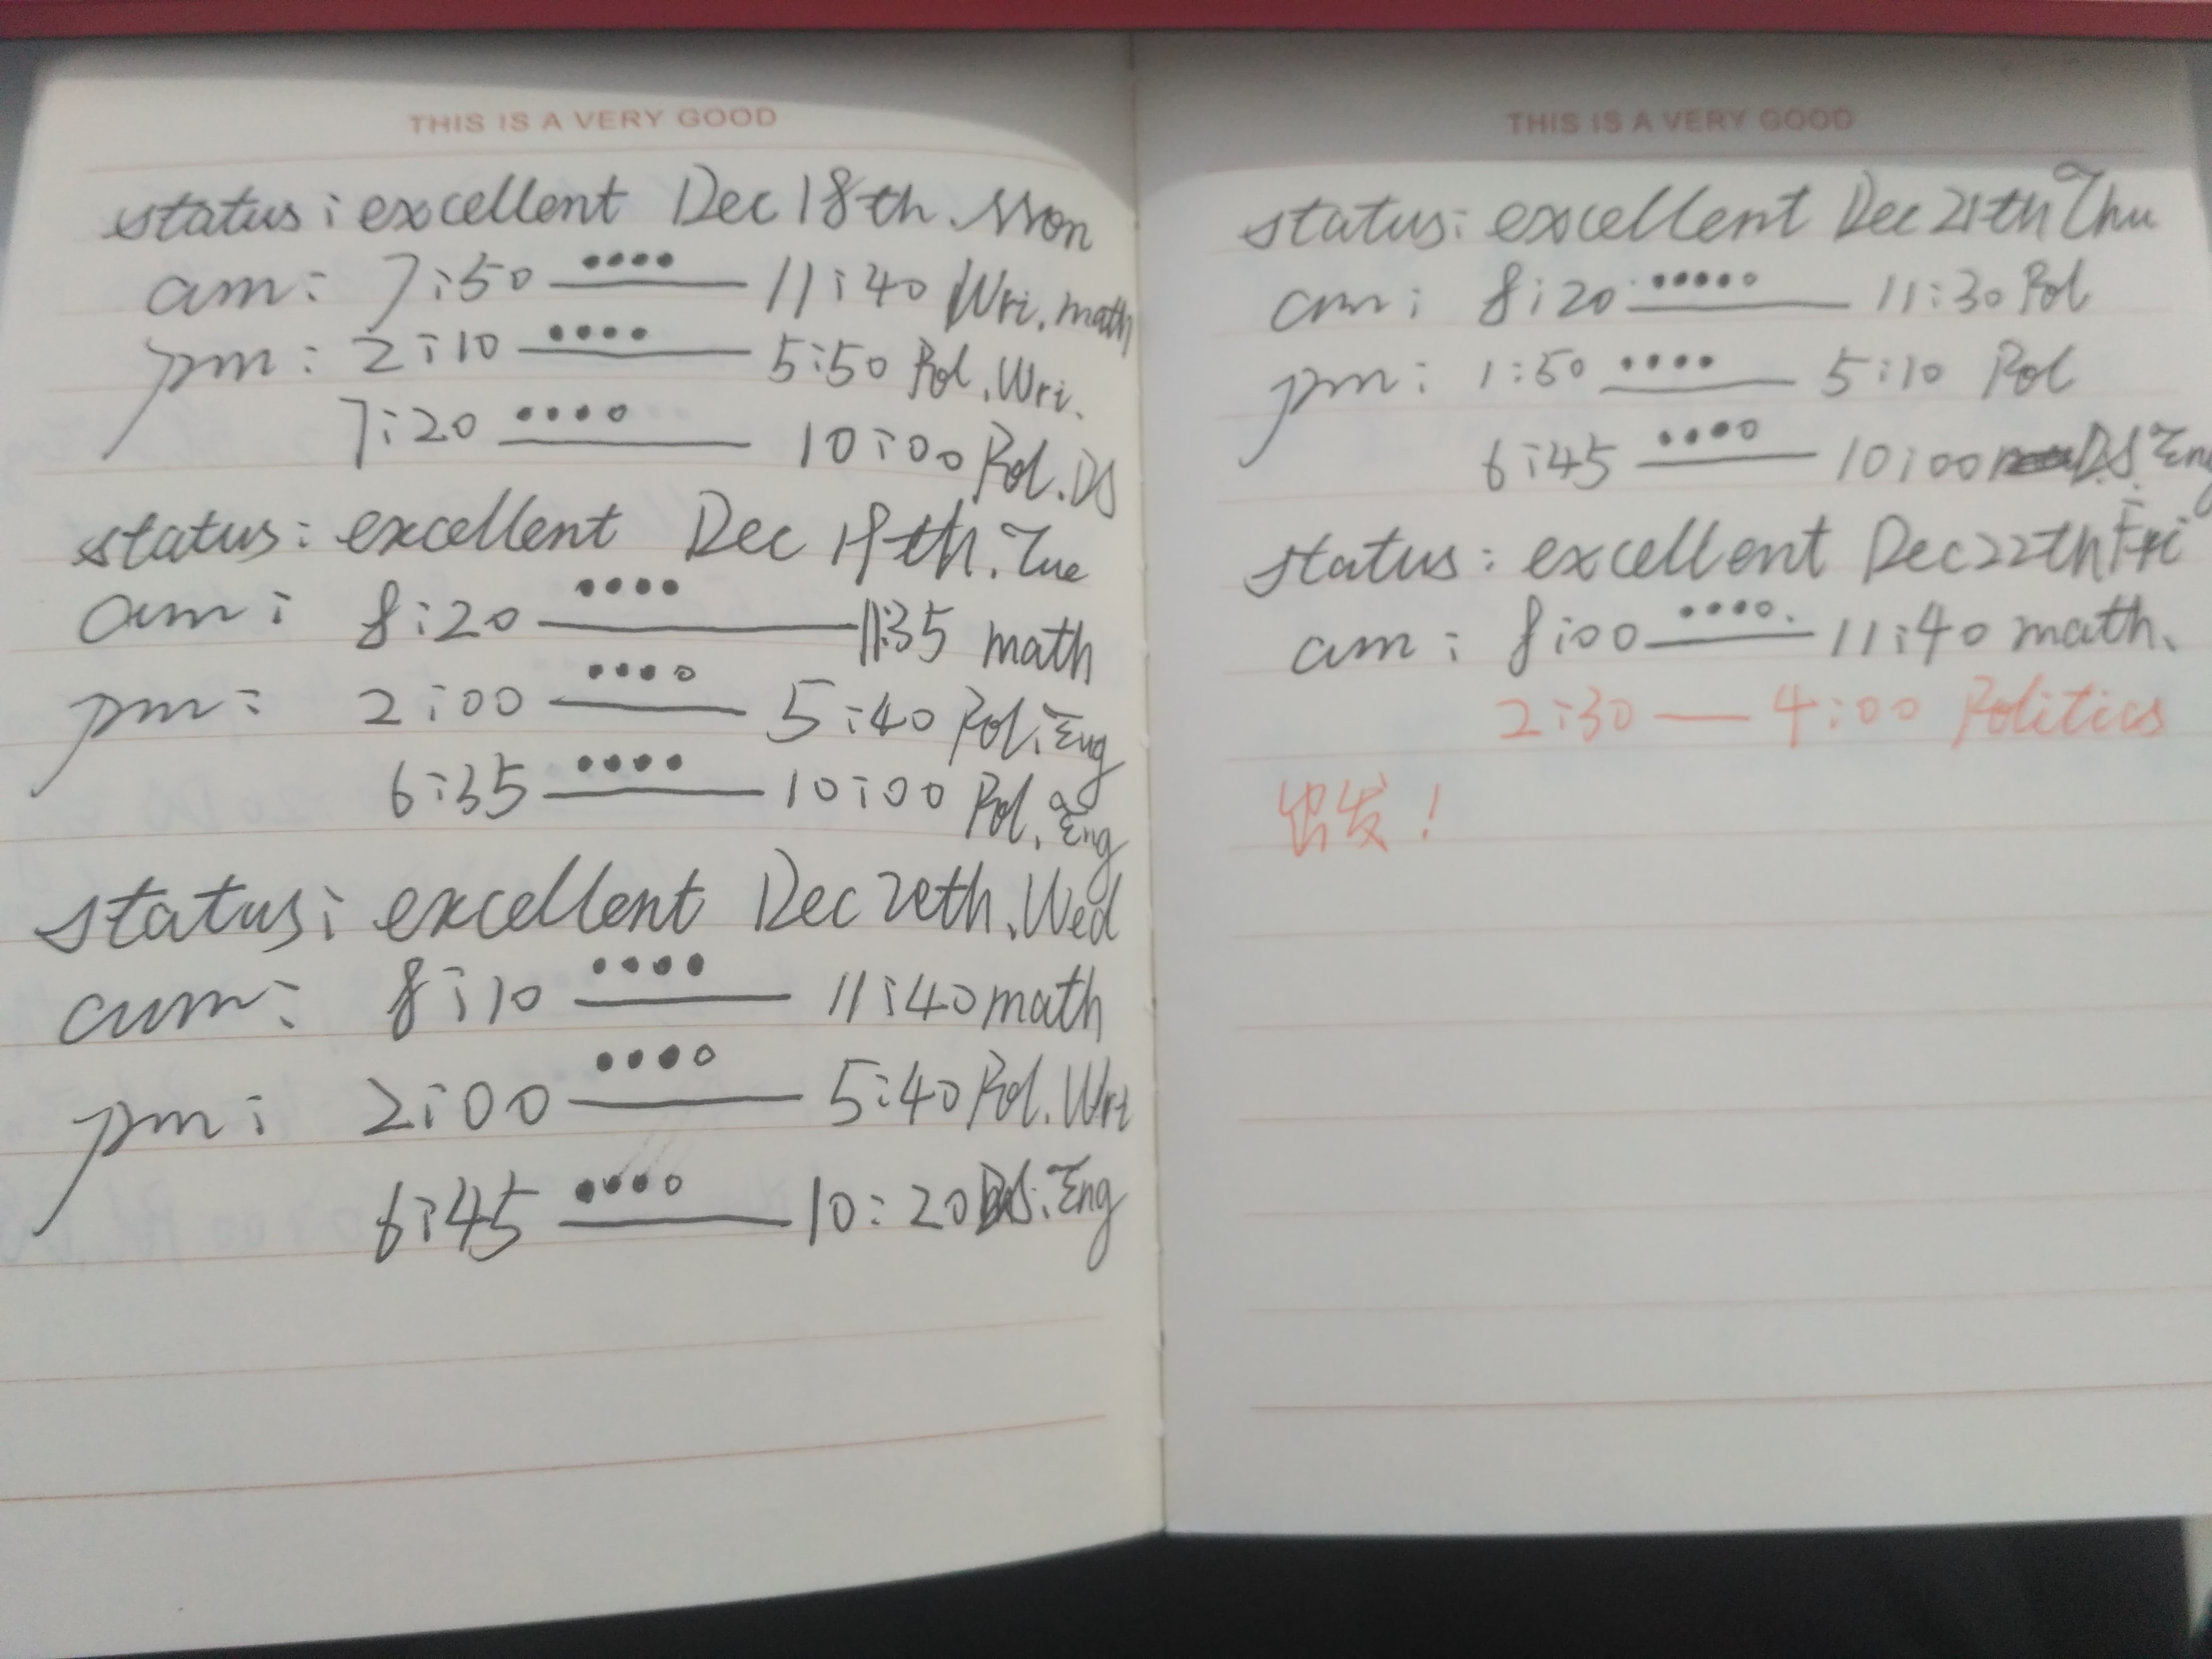 THIS IS A VERY GOOD
status: excellent Dec 18th. Mon
am: 7:50 •••• 11:40 Wri. math
pm: 2:10 •••• 5:50 Pol. Wri.
7:20 •••○ 10:00 Pol. DS
status: excellent Dec 19th. Tue
am: 8:20 •••• 11:35 math
pm: 2:00 •••○ 5:40 Pol. Eng
6:35 •••• 10:00 Pol. Eng
status: excellent Dec 20th. Wed
am: 8:10 •••• 11:40 math
pm: 2:00 •••○ 5:40 Pol. Wri
6:45 •••○ 10:20 DS. Eng
THIS IS A VERY GOOD
status: excellent Dec 21th Thu
am: 8:20 ••••○ 11:30 Pol
pm: 1:50 •••• 5:10 Pol
6:45 •••○ 10:00 DS Eng
status: excellent Dec 22th Fri
am: 8:00 •••○. 11:40 math.
2:30 — 4:00 Politics
出发!